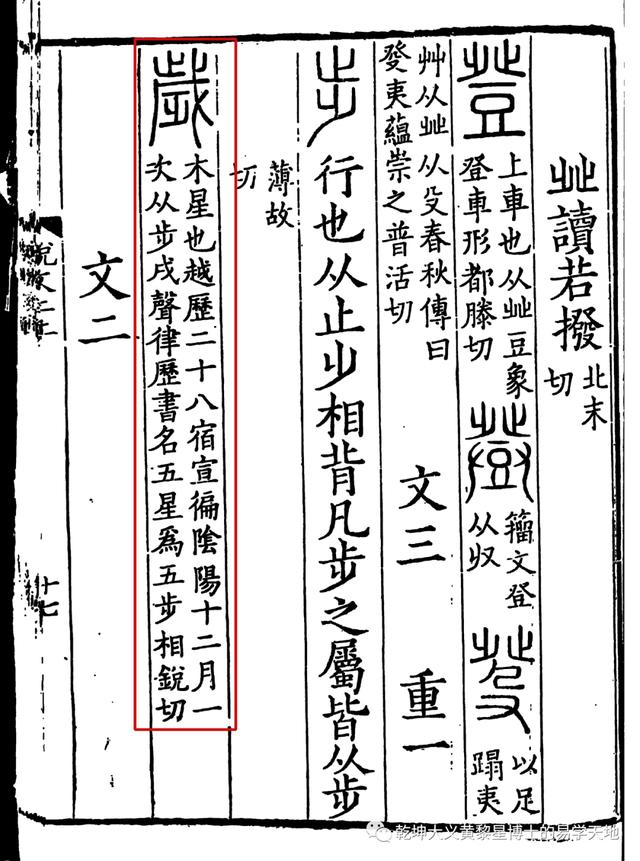 癶讀若撥北末
切
登上車也从癶豆象
登車形都滕切
籀文登
从収
癹以足
蹋夷
艸从癶从殳春秋傳曰
癹夷蘊崇之普活切
文三 重一
步行也从止少相背凡步之屬皆从步
薄故
切
歲木星也越歷二十八宿宣徧陰陽十二月一
次从步戌聲律歷書名五星爲五步相銳切
文二
說文二上
十七
乾坤大义黄黎星博士的易学天地